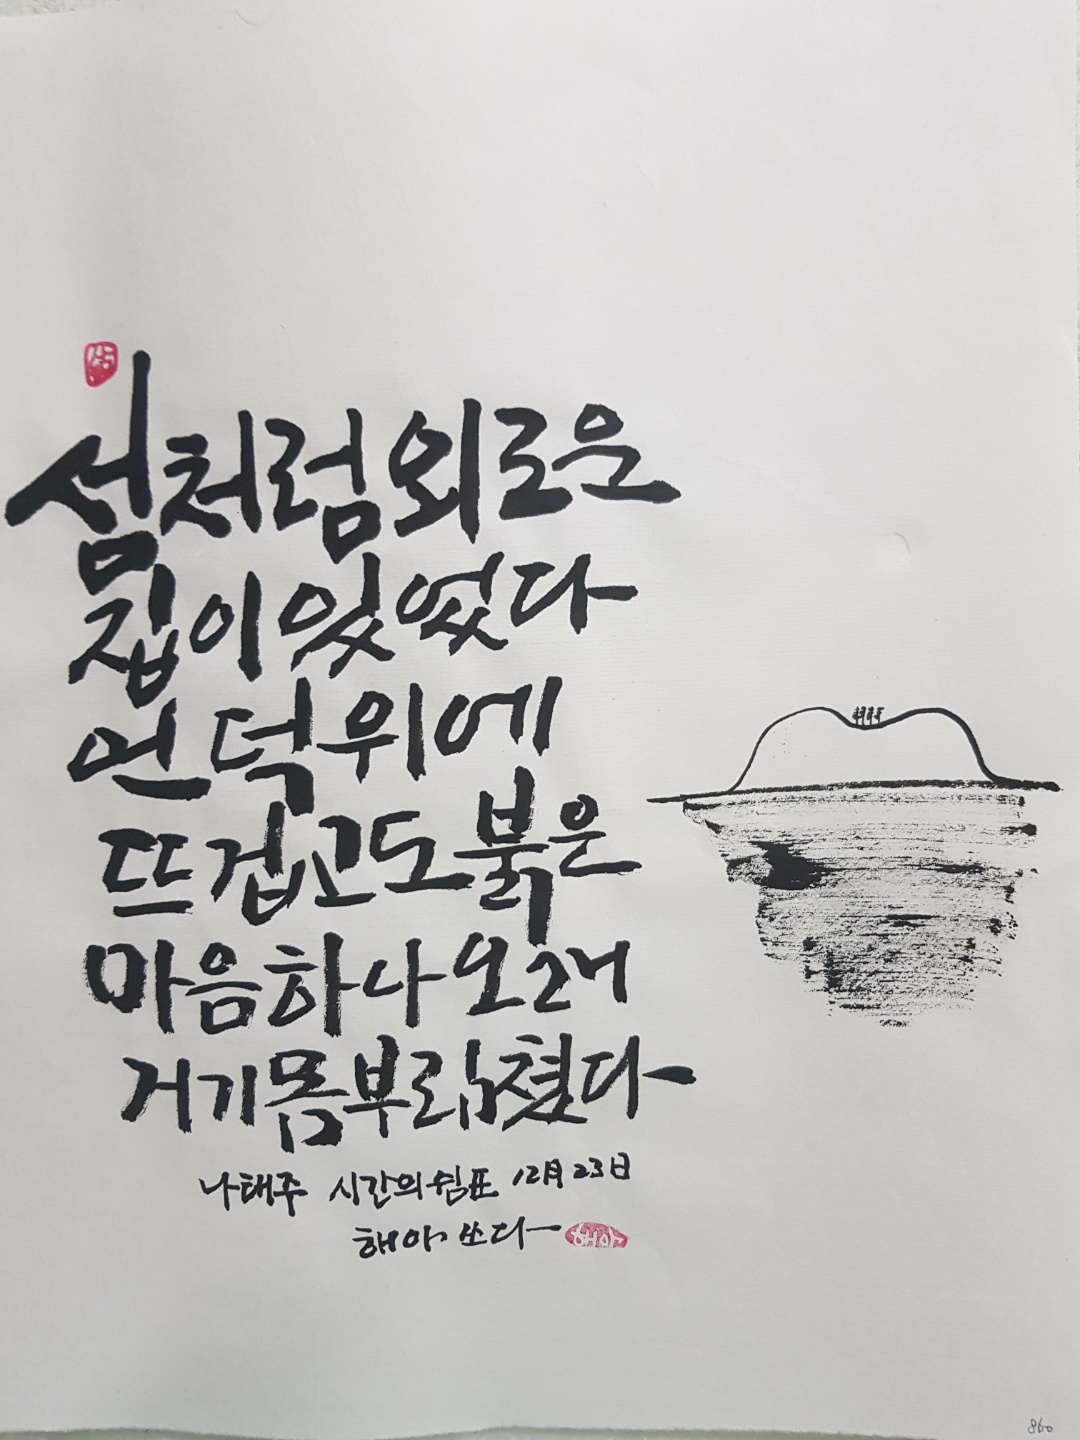 섬처럼외로운
집이있었다
언덕위에
뜨겁고도붉은
마음하나오래
거기몸부림쳤다
나태주 시간의쉼표 12月23日
해아 쓰다
해아
860